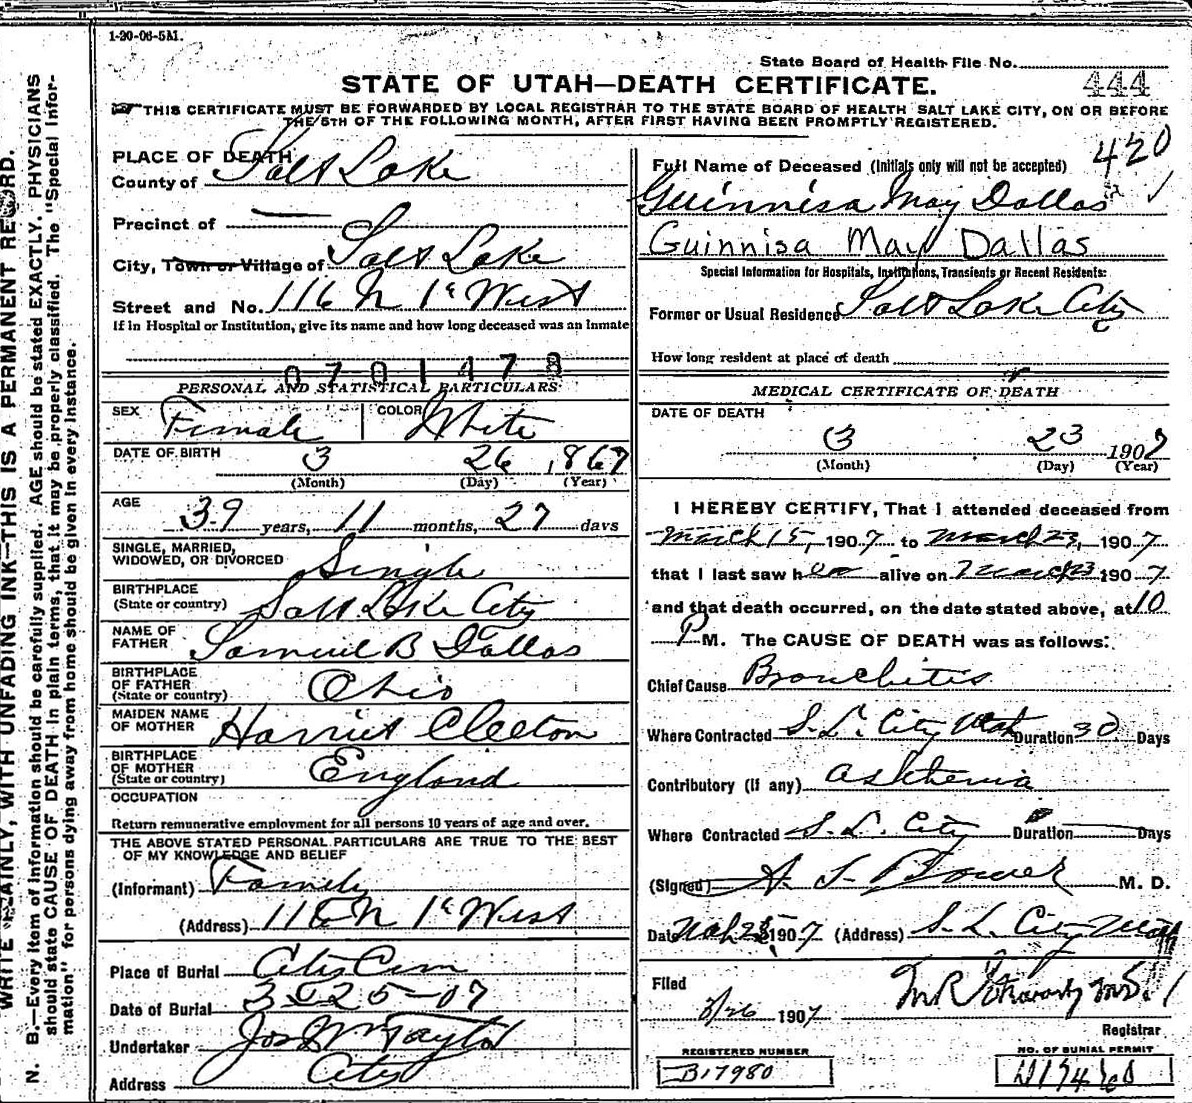 1-20-06-5M.
State Board of Health File No.
444
STATE OF UTAH—DEATH CERTIFICATE.
THIS CERTIFICATE MUST BE FORWARDED BY LOCAL REGISTRAR TO THE STATE BOARD OF HEALTH SALT LAKE CITY, ON OR BEFORE
THE 5TH OF THE FOLLOWING MONTH, AFTER FIRST HAVING BEEN PROMPTLY REGISTERED.
WRITE PLAINLY, WITH UNFADING INK—THIS IS A PERMANENT RECORD.
N. B.—Every item of information should be carefully supplied. AGE should be stated EXACTLY. PHYSICIANS
should state CAUSE OF DEATH in plain terms, that it may be properly classified. The "Special Infor-
mation" for persons dying away from home should be given in every instance.
PLACE OF DEATH
County of Salt Lake
Precinct of —
City, Town or Village of Salt Lake
Street and No. 116 N 1st West
If in Hospital or Institution, give its name and how long deceased was an inmate
0701478
PERSONAL AND STATISTICAL PARTICULARS
SEX Female COLOR White
DATE OF BIRTH 3 26 1867
(Month) (Day) (Year)
AGE 39 years, 11 months, 27 days
SINGLE, MARRIED,
WIDOWED, OR DIVORCED Single
BIRTHPLACE
(State or country) Salt Lake City
NAME OF
FATHER Samuel B Dallas
BIRTHPLACE
OF FATHER
(State or country) Ohio
MAIDEN NAME
OF MOTHER Harriet Cleeton
BIRTHPLACE
OF MOTHER
(State or country) England
OCCUPATION
Return remunerative employment for all persons 10 years of age and over.
THE ABOVE STATED PERSONAL PARTICULARS ARE TRUE TO THE BEST
OF MY KNOWLEDGE AND BELIEF
(Informant) Family
(Address) 116 N 1st West
Place of Burial City Cem
Date of Burial 3-25-07
Undertaker Jos Wm Taylor
Address City
Full Name of Deceased (Initials only will not be accepted) 420
Guinnisa May Dallas
Guinnisa May Dallas
Special Information for Hospitals, Institutions, Transients or Recent Residents:
Former or Usual Residence Salt Lake City
How long resident at place of death
MEDICAL CERTIFICATE OF DEATH
DATE OF DEATH
3 23 1907
(Month) (Day) (Year)
I HEREBY CERTIFY, That I attended deceased from
March 15, 1907 to March 23, 1907
that I last saw her alive on March 23 1907
and that death occurred, on the date stated above, at 10
P M. The CAUSE OF DEATH was as follows:
Chief Cause Bronchitis
Where Contracted S. L. City Utah Duration 30 Days
Contributory (if any) Asthenia
Where Contracted S. L. City Duration Days
(Signed) A S Bower M. D.
Date 1907 (Address) S. L. City Utah
Filed
3/26 1907
Registrar
REGISTERED NUMBER
B17980
NO. OF BURIAL PERMIT